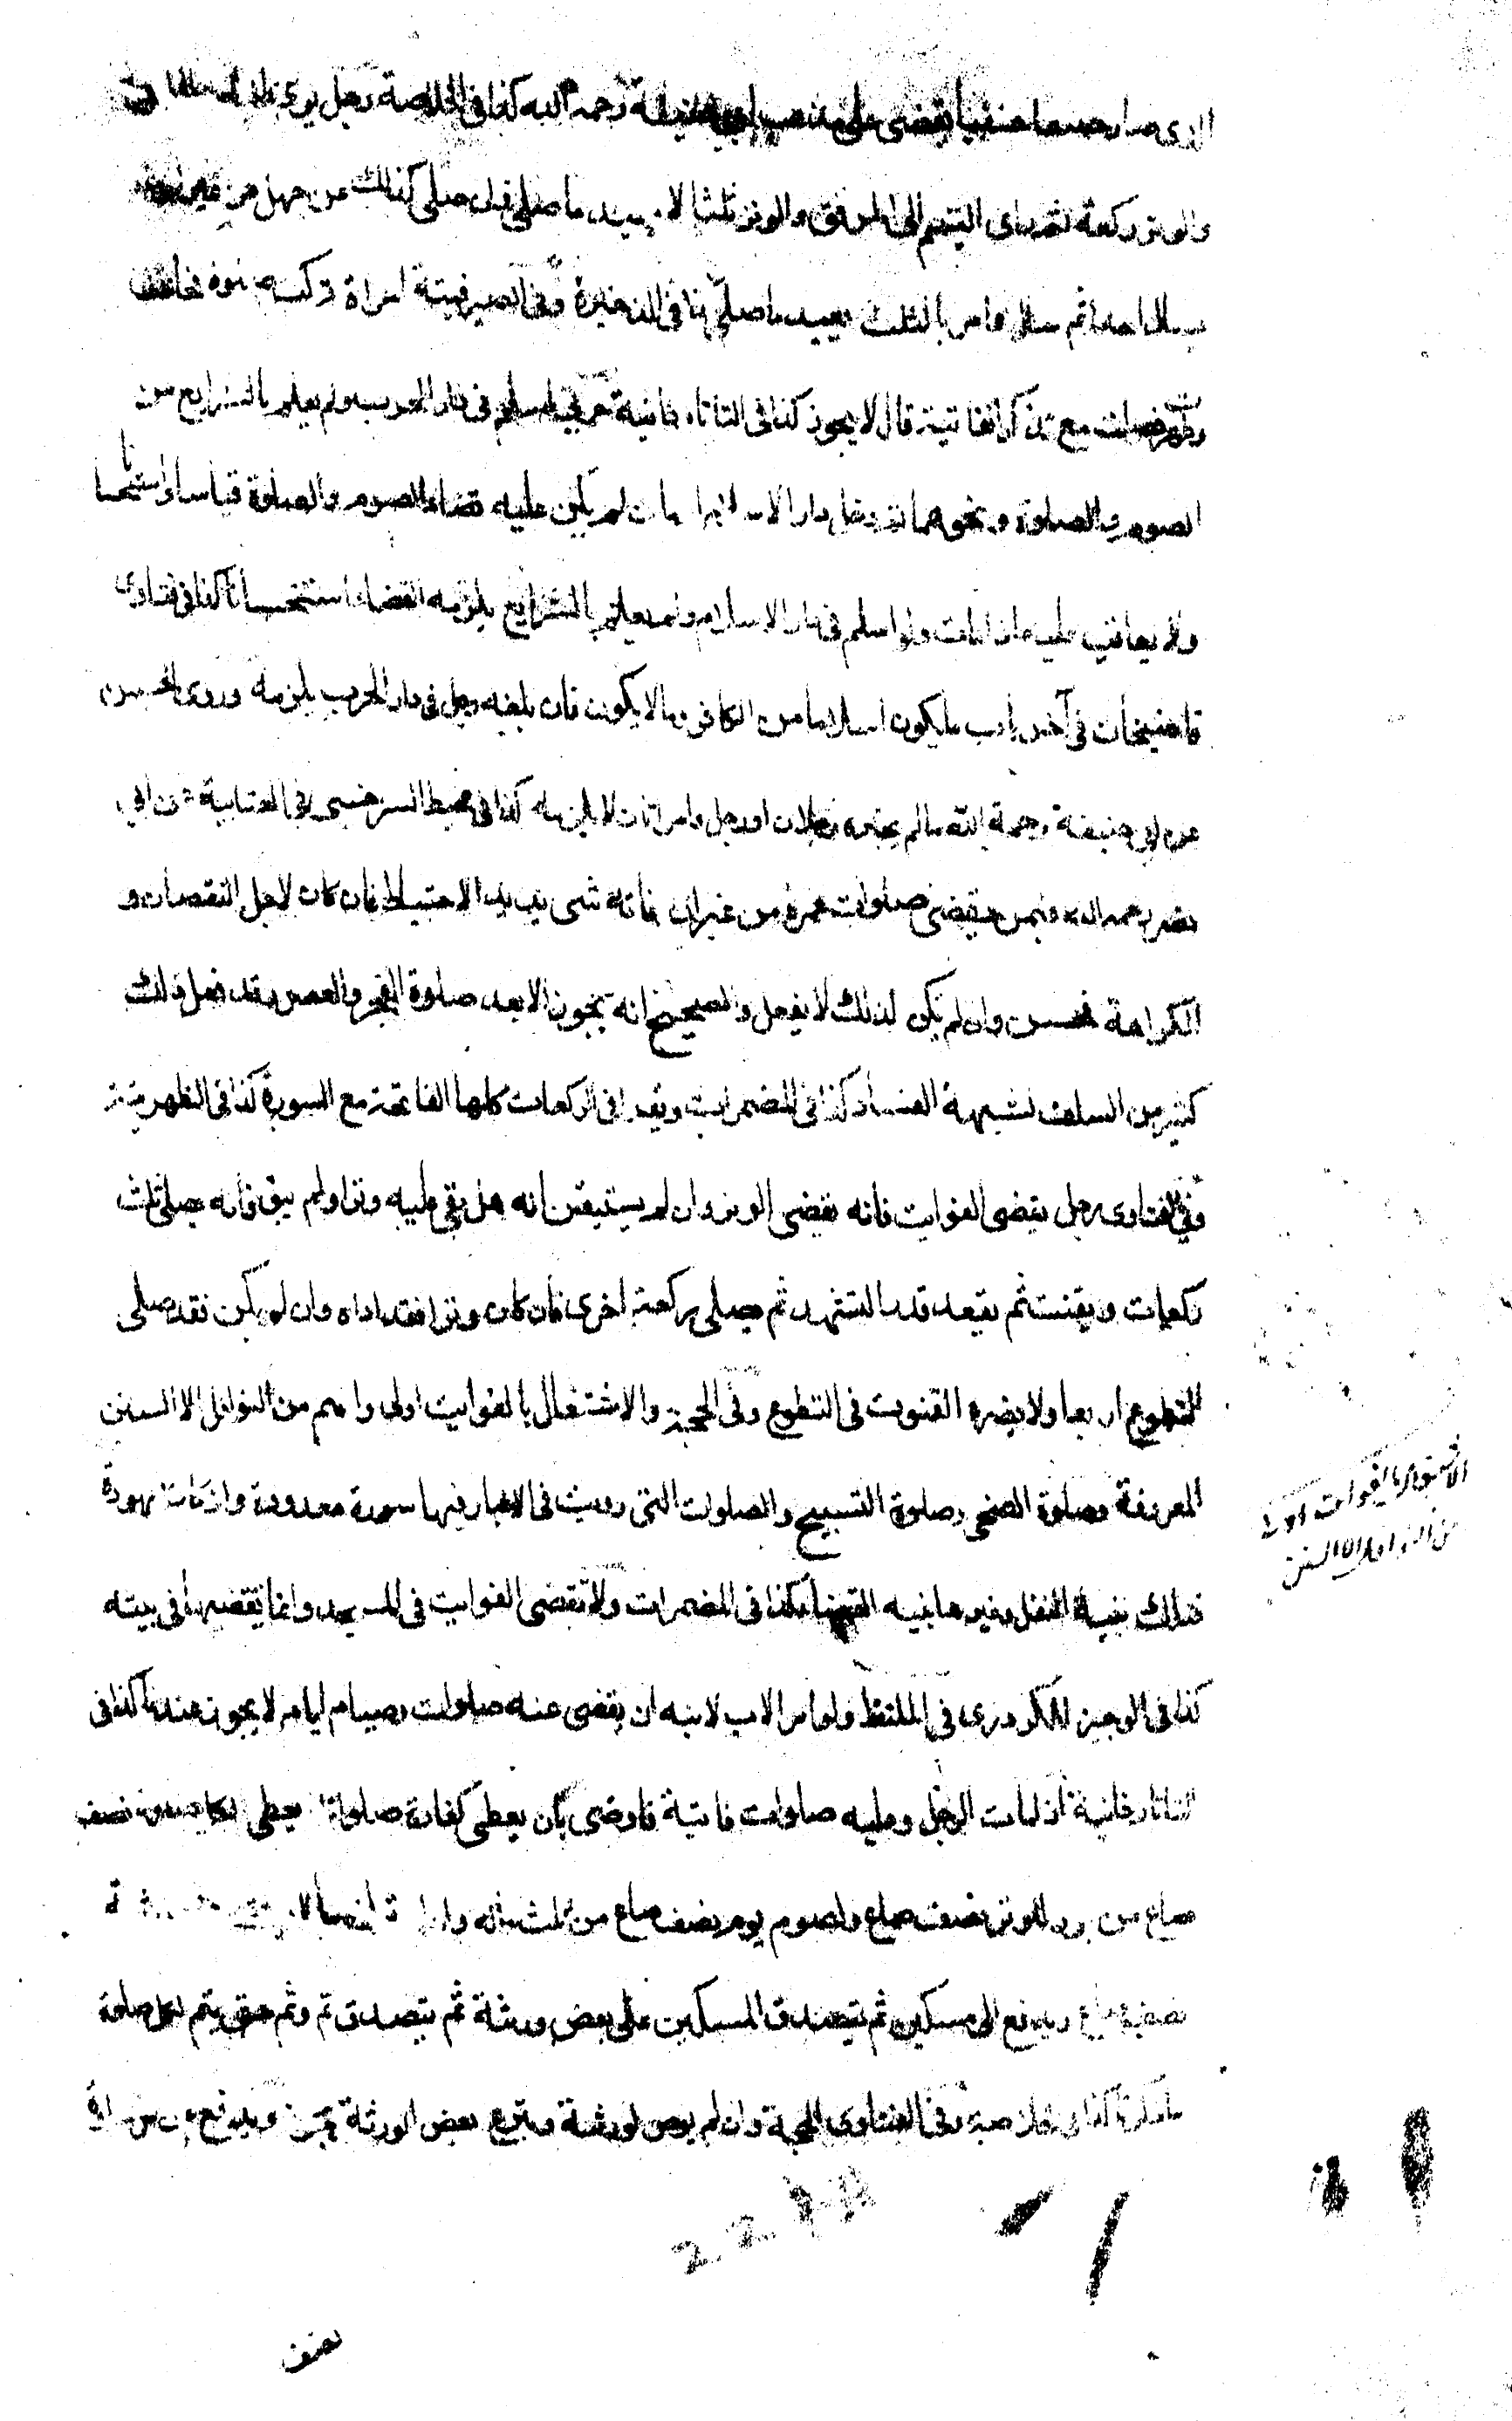 الذى صار حنفيا يقضى على مذهب ابى حنيفة رحمه الله كذا فى الخلاصة رجل يرى التيمم
والوتر ركعة ثم راى التيمم الى المرفق والوتر ثلثا لا يعيد ما صلى فان صلى كذلك عن جهل من غير
ثم سال فامر بالثلث يعيد ما صلى هكذا فى الذخيرة وفى الصيرفية امراة تركت صلوة فحاضت
وطهرت فصلت مع تذكر الفائتة قال لا يجوز كذا فى التاتارخانية حربى اسلم فى دار الحرب ولم يعلم بالشرايع من
الصوم والصلوة ونحوهما ثم دخل دار الاسلام او مات لم يكن عليه قضاء الصوم والصلوة قياسا واستحسانا
ولا يعاقب عليه اذا مات ولو اسلم فى دار الاسلام ولم يعلم بالشرايع يلزمه القضاء استحسانا كذا فى فتاوى
قاضيخان فى آخر باب ما يكون اسلاما من الكافر وما لا يكون فان بلغه رجل فى دار الحرب يلزمه وروى الحسن
عن ابى حنيفة رحمة الله ما لم يخبره رجلان او رجل وامراتان لا يلزمه كذا فى محيط السرخسى وفى العتابية عن ابى
نصر رحمه الله فيمن يقضى صلوات عمره من غير ان فاته شى يريد الاحتياط فان كان لاجل النقصان و
الكراهة فحسن وان لم يكن لذلك لا يفعل والصحيح انه يجوز الا بعد صلوة الفجر والعصر وقد فعل ذلك
كثير من السلف لشبهة الفساد كذا فى المضمرات ويقرا فى الركعات كلها الفاتحة مع السورة كذا فى الظهيرية
وفى الفتاوى رجل يقضى الفوايت فانه يقضى الوتر وان لم يستيقن انه هل بقى عليه وتر او لم يبق فانه يصلى ثلث
ركعات ويقنت ثم يقعد قدر التشهد ثم يصلى ركعة اخرى فان كان وترا فقد اداه وان لم يكن فقد صلى
التطوع اربعا ولا يضره القنوت فى التطوع وفى الحجة والاشتغال بالفوايت اولى واهم من النوافل الا السنن
المعروفة وصلوة الضحى وصلوة التسبيح والصلوات التى رويت فى الاخبار فيها سورة معدودة واذكار معهودة
فتلك بنية النفل وغيرها بنية القضاء كذا فى المضمرات ولا تقضى الفوايت فى المسجد وانما يقضيها فى بيته
كذا فى الوجيز للكردرى فى الملتقط ولو امر الاب لابنه ان يقضى عنه صلوات وصيام ايام لا يجوز عندنا كذا فى
التاتارخانية اذا مات الرجل وعليه صلوات فائتة فاوصى بان يعطى كفارة صلواته يعطى لكل صلوة نصف
صاع من بر وللوتر نصف صاع ولصوم يوم نصف صاع من ثلث ماله وان
نصف صاع ويدفع الى مسكين ثم يتصدق المسكين على بعض ورثة ثم يتصدق ثم وثم حتى يتم لكل صلوة
كذا فى الخلاصة وفى الفتاوى الحجة وان لم يوص لورثة وتبرع بعض الورثة يجوز ويدفع عن
الاشتغال بالفوايت اولى
من النوافل الا السنن